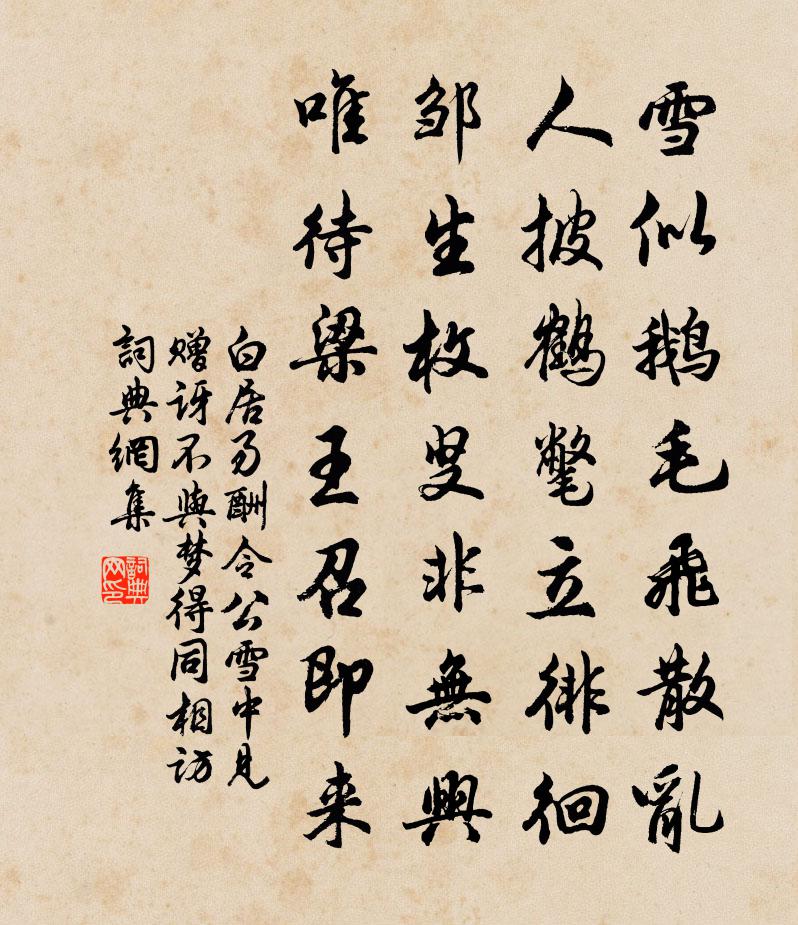 雪似鹅毛飛散亂
人披鹤氅立徘徊
邹生枚叟非無興
唯待梁王召即来
白居易酬令公雪中見
赠讶不與梦得同相访
詞典網集
詞典网印